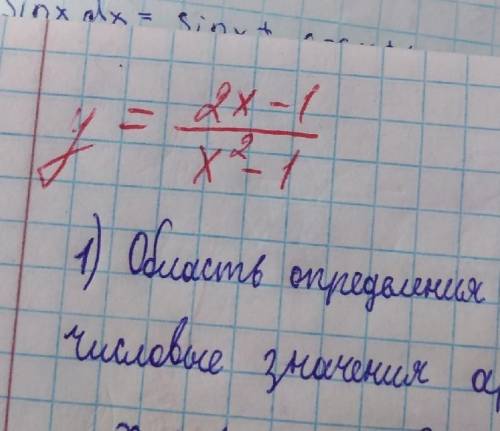 sinx dx = sin
y = \frac{2x-1}{x^2-1}
1) Область определения
числовые значения